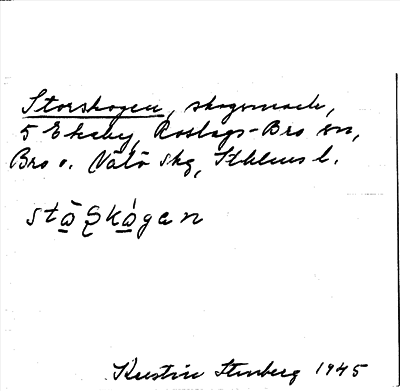 Storskogen, skogsmark,
5 Ekeby, Roslags-Bro sn,
Bro o. Vätö skg, Sthlms l.
stå̄ʂkǻgan
Kerstin Stenberg 1945